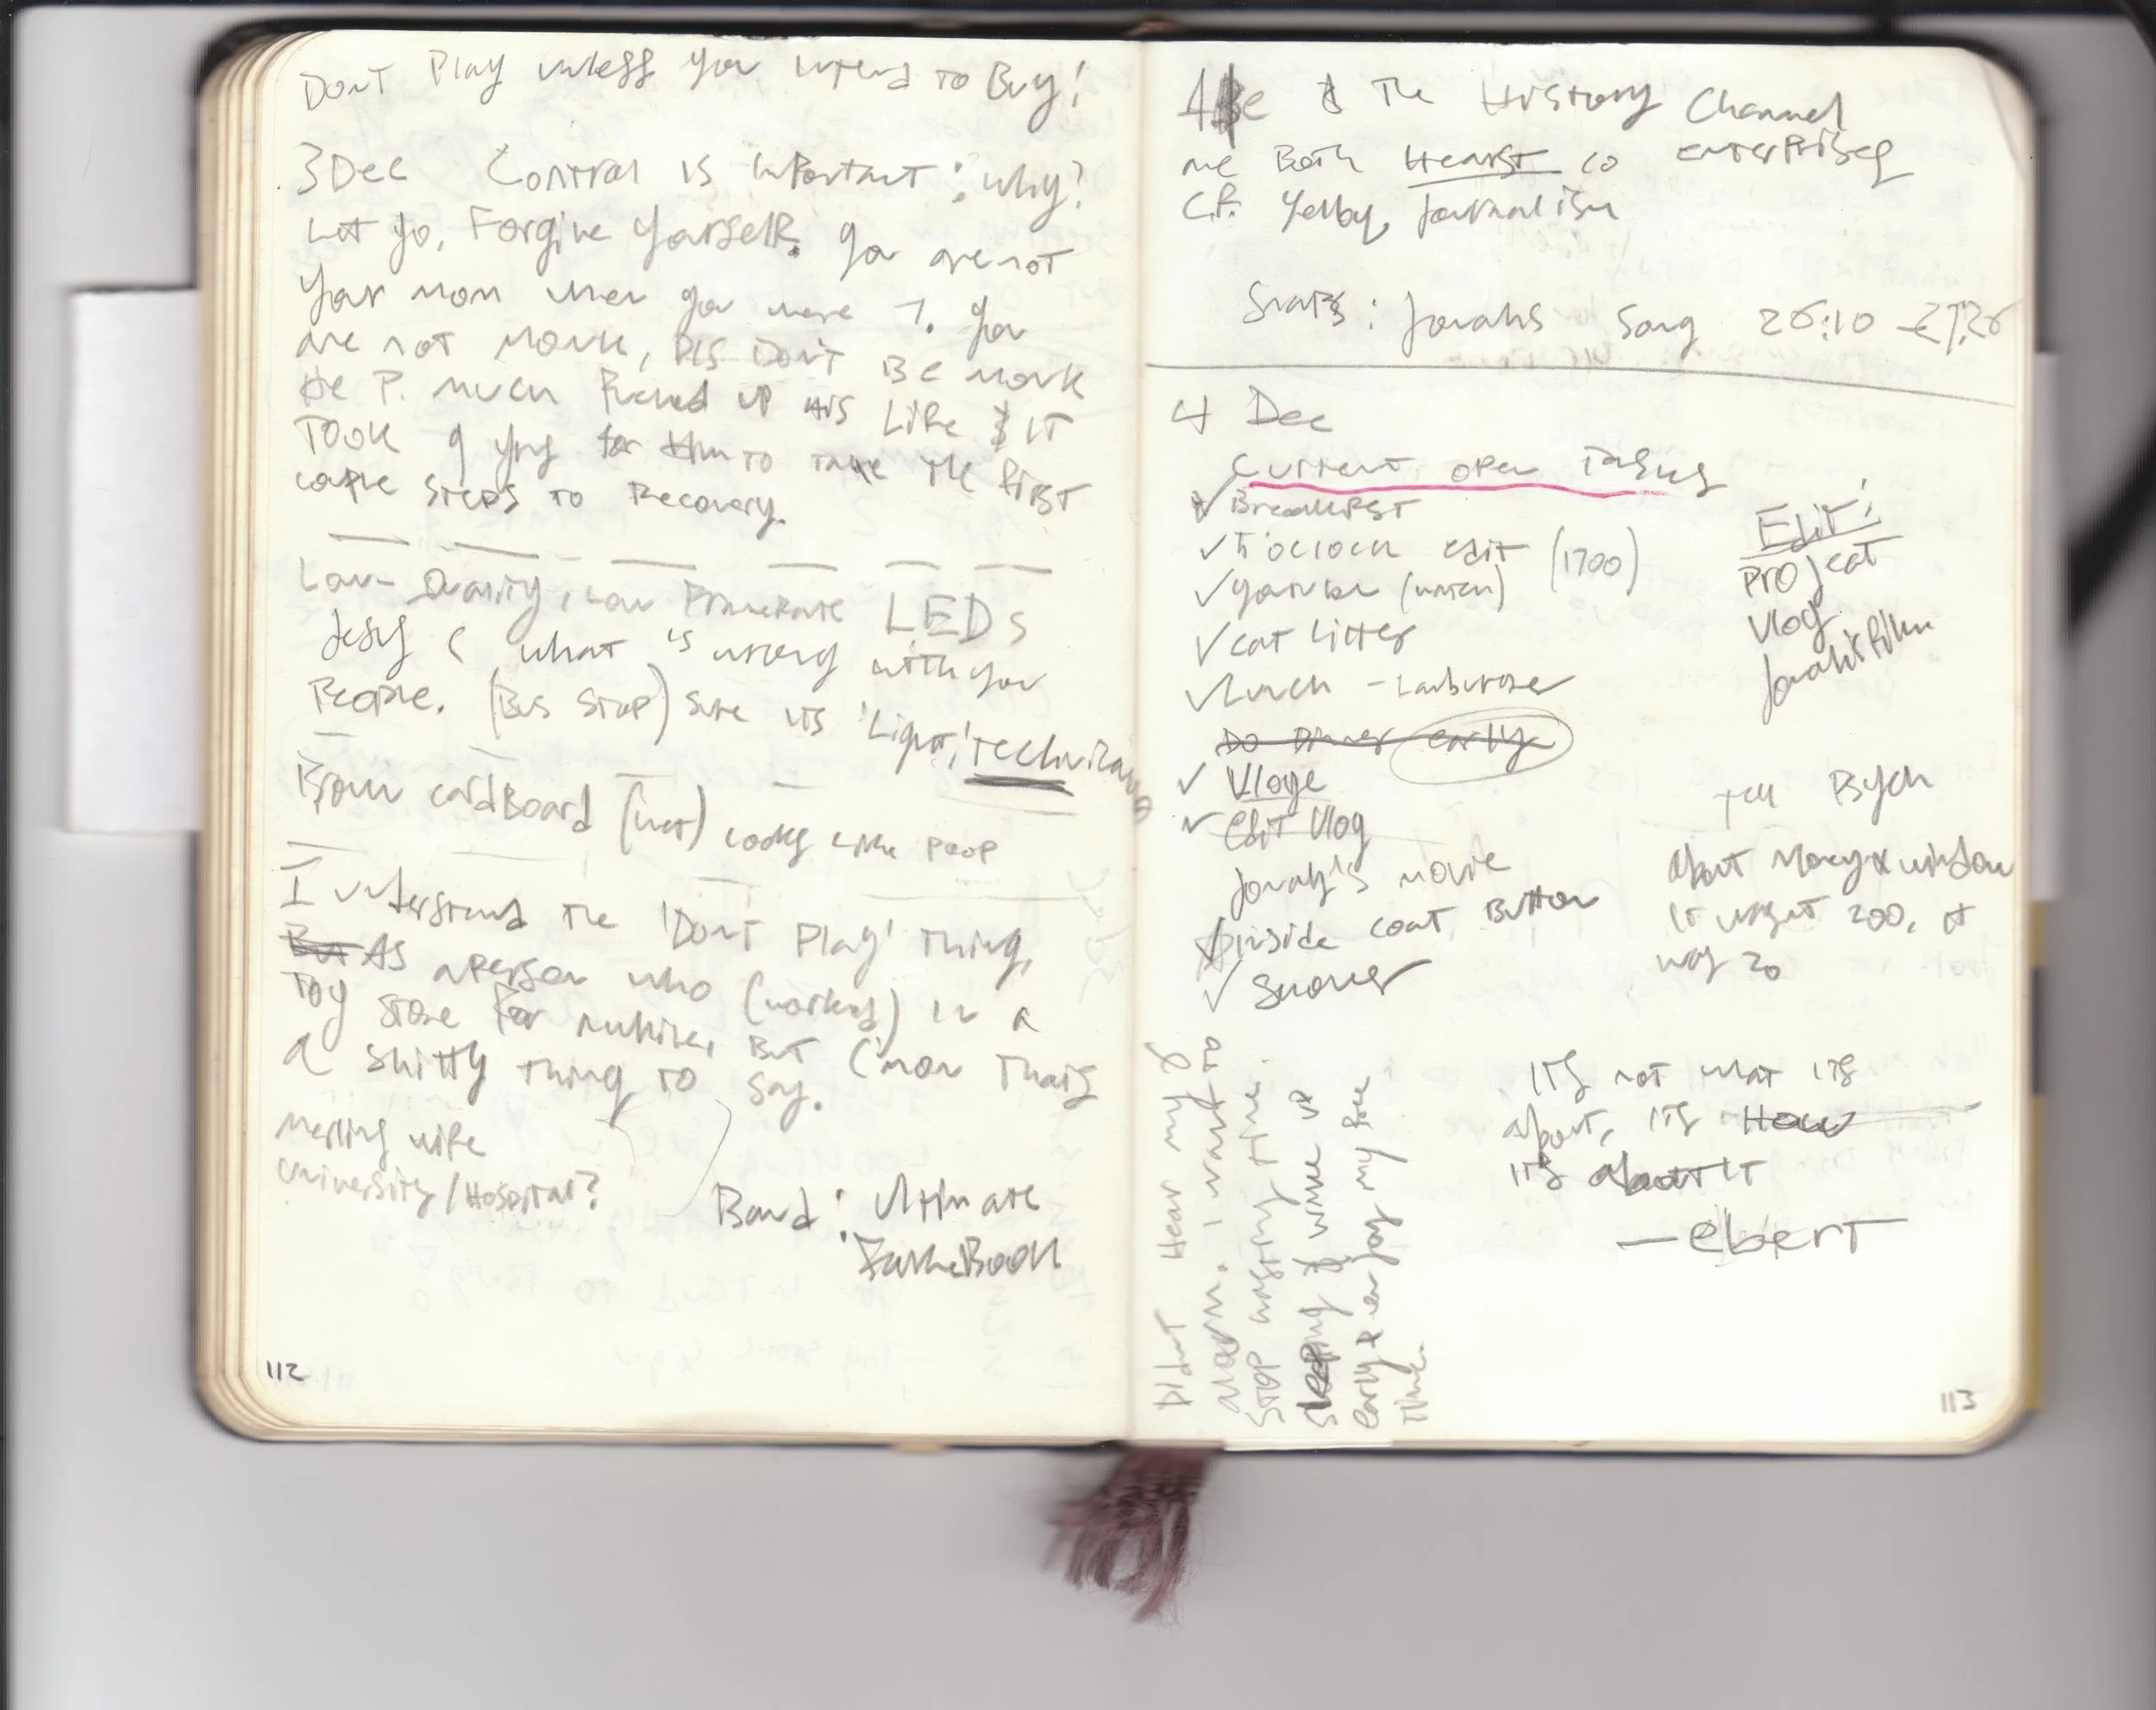 Dont Play unless you intend to Buy!
3 Dec Control is important: why?
Let go, Forgive yourself. you are not
your mom when you were 7. you
are not Mark, pls Don't Be Mark
He P. much fucked up his life & it
TOOK 9 yrs for him to take the first
couple steps to Recovery.
Low-Quality, Low Framerate LEDs
Jesus C what is wrong with you
People. (Bus Stop) sure its 'Light,' technically
Brown cardboard (wet) looks like poop
I understand the 'Dont Play' thing,
But As a person who (worked) in a
Toy store for awhile, But C'mon Thats
a shitty thing to say.
wife
University/Hospital?
Band: Ultimate
FakeBook
112
A&E & The History Channel
are Both Hearst co enterprises
C.f. Yellow Journalism
Jonahs Song 26:10 - 27:26
4 Dec
Current open Tasks
✓ Breakfast
✓ 5 o'clock edit (1700)
✓ Youtube (watch)
✓ cat litter
✓ Lunch -
Do Dinner early
✓ Vloge
✓ Edit Vlog
Jonah's movie
inside coat Button
✓ Shower
Edit:
Project
Vlog
Jonahs film
Tell Psych
about Money & window
it wasnt 200, it
was 20
Its not what its
about, its How
its about it
—ebert
Didnt Hear my
alarm. I want to
stop wasting time
sleeping & wake up
early & enjoy my free
time.
113